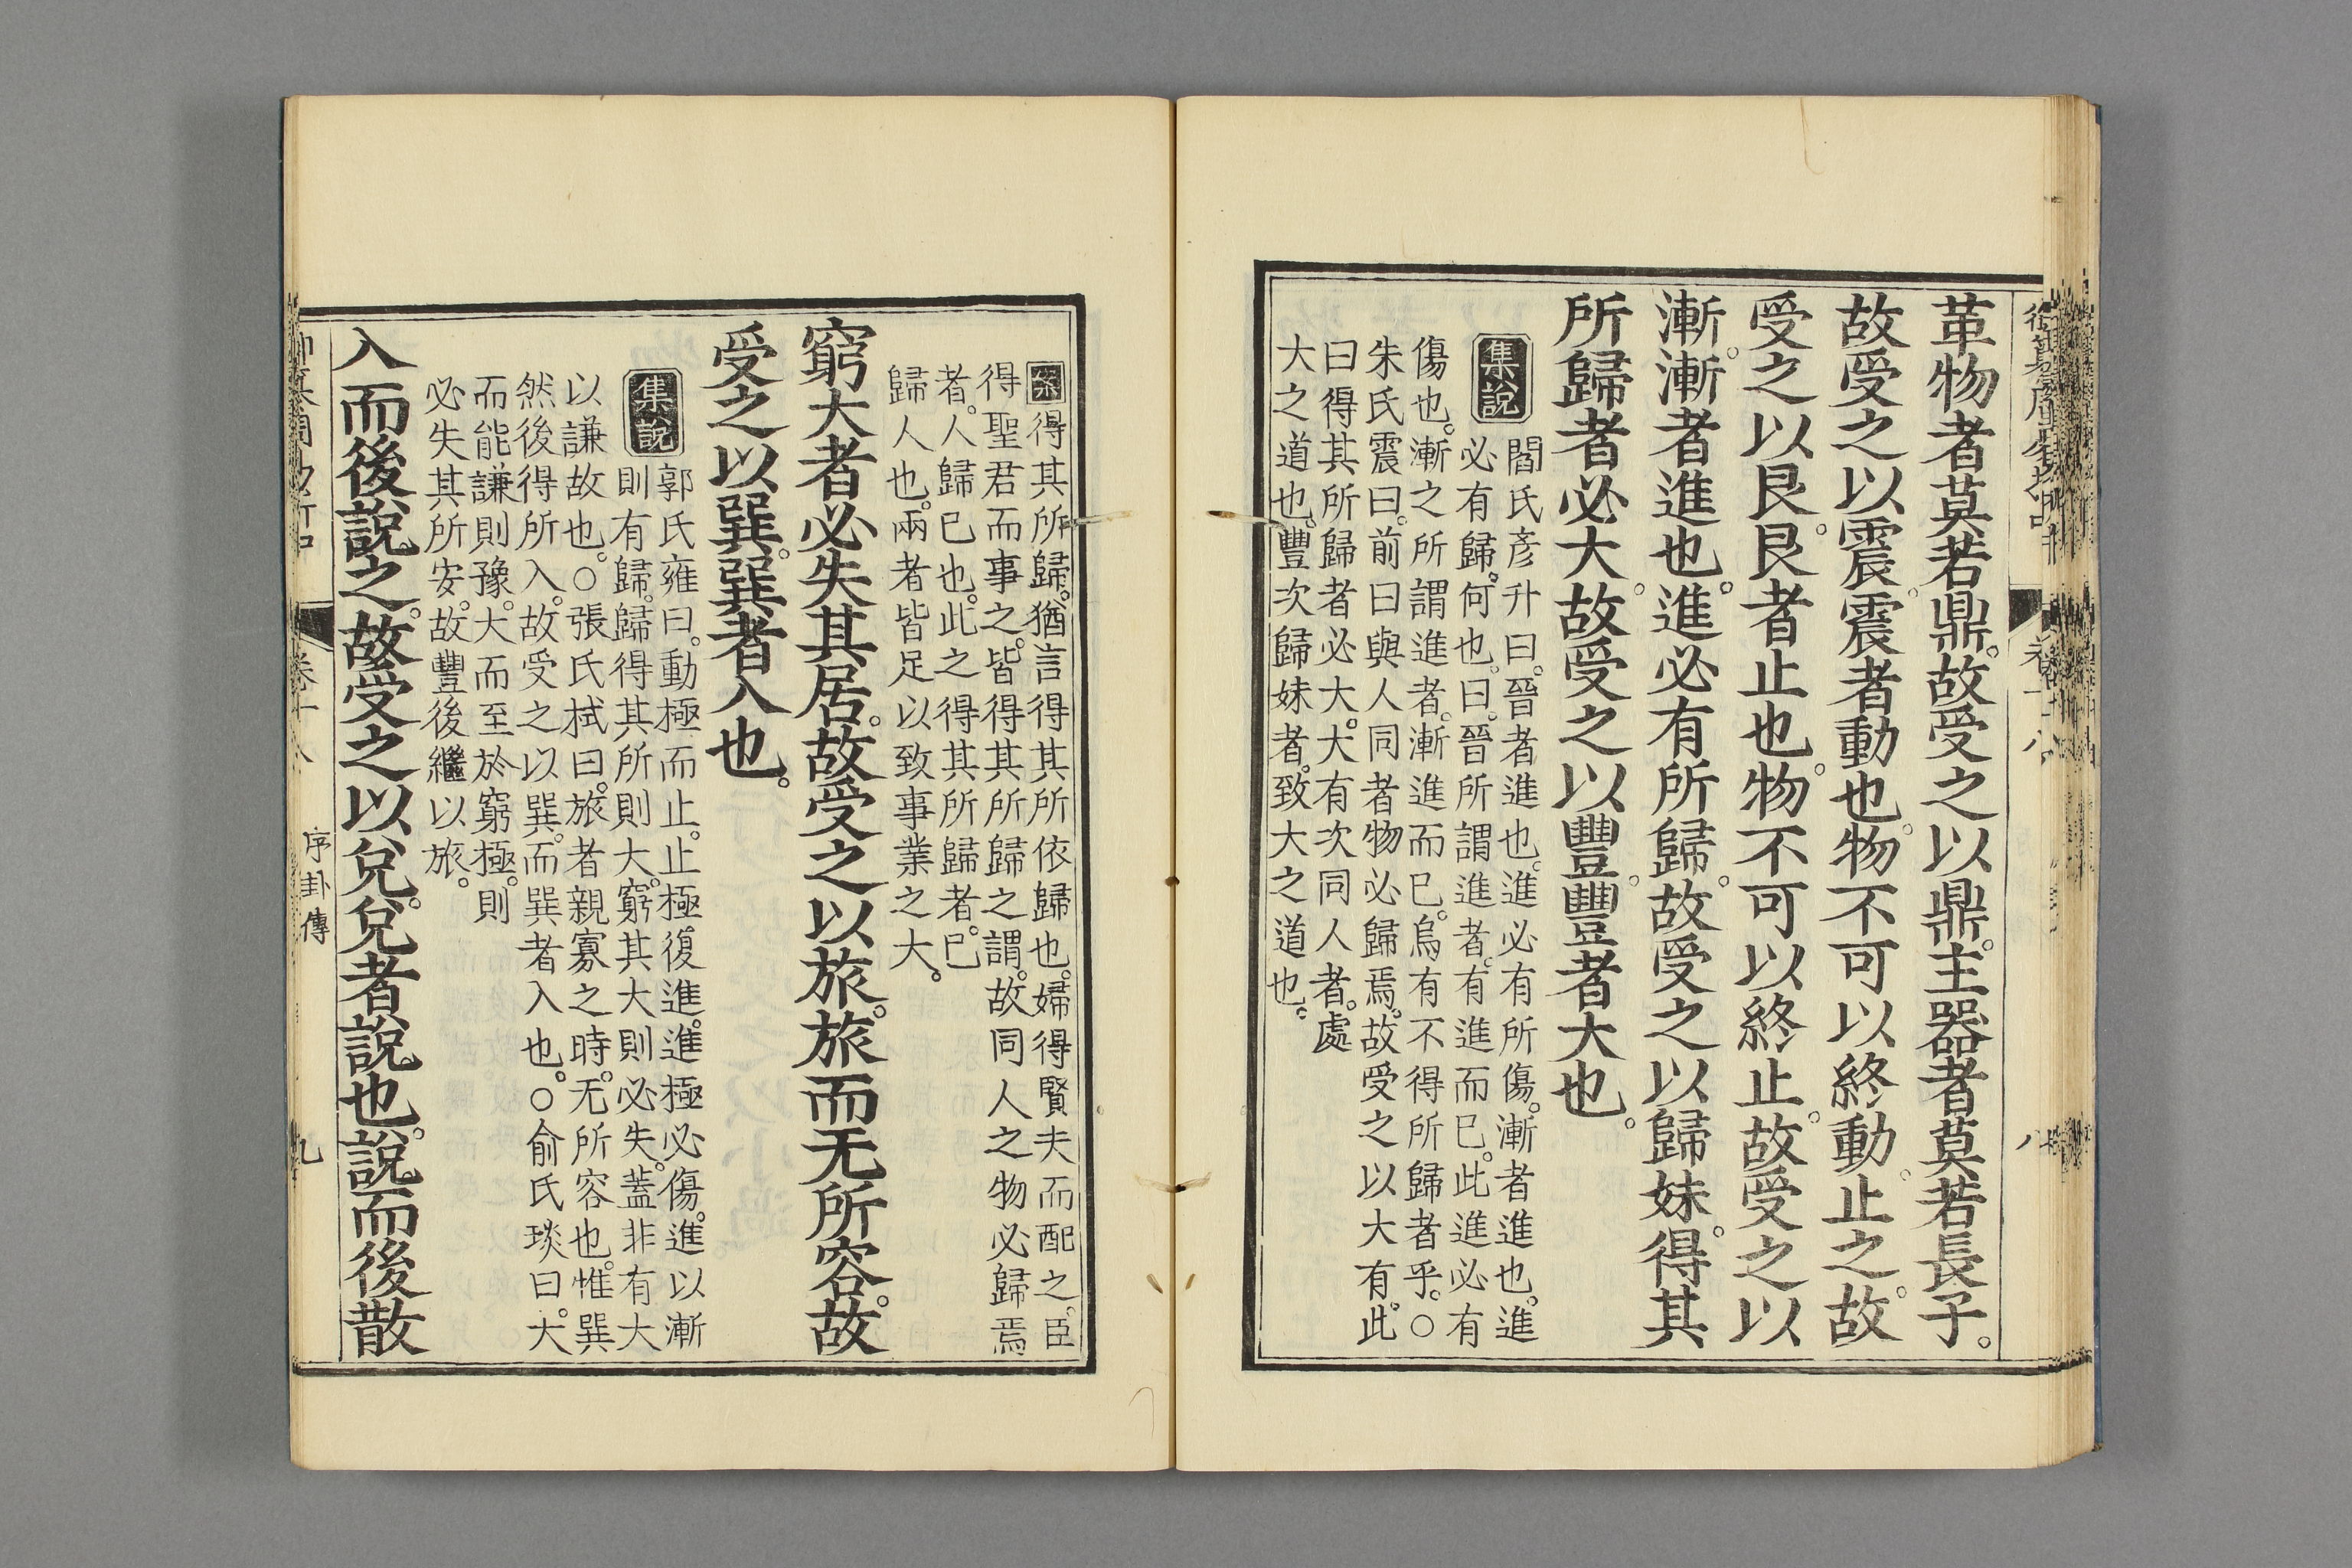 革物者莫若鼎。故受之以鼎。主器者莫若長子。
故受之以震。震者動也。物不可以終動。止之。故
受之以艮。艮者止也。物不可以終止。故受之以
漸。漸者進也。進必有所歸。故受之以歸妹。得其
所歸者必大。故受之以豐。豐者大也。
集說
閻氏彥升曰。晉者進也。進必有所傷。漸者進也。進
必有歸。何也。曰。晉所謂進者。有進而已。此進必有
傷也。漸之所謂進者。漸進而已。烏有不得所歸者乎。○
朱氏震曰。前曰與人同者物必歸焉。故受之以大有。此
曰得其所歸者必大。大有次同人者。處
大之道也。豐次歸妹者。致大之道也。
案 得其所歸。猶言得其所依歸也。婦得賢夫而配之。臣
得聖君而事之。皆得其所歸之謂。故同人之物必歸焉
者。人歸已也。此之得其所歸者。已
歸人也。兩者皆足以致事業之大。
窮大者必失其居。故受之以旅。旅而无所容。故
受之以巽。巽者入也。
集說
郭氏雍曰。動極而止。止極復進。進極必傷。進以漸
則有歸。歸得其所則大。窮其大則必失。蓋非有大
以謙故也。○張氏栻曰。旅者親寡之時。无所容也。惟巽
然後得所入。故受之以巽。而巽者入也。○俞氏琰曰。大
而能謙則豫。大而至於窮極。則
必失其所安。故豐後繼以旅。
入而後說之。故受之以兌。兌者說也。說而後散
卷十八
序卦傳
九